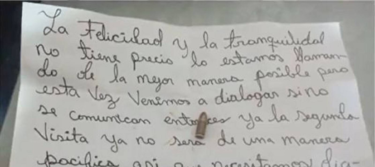 La Felicidad y la tranquilidad
no tiene precio lo estamos llaman
do de la mejor manera posible pero
esta vez venimos a dialogar sino
se comunican entonces ya la segunda
visita ya no será de una manera
pacifica asi necesitamos dia-